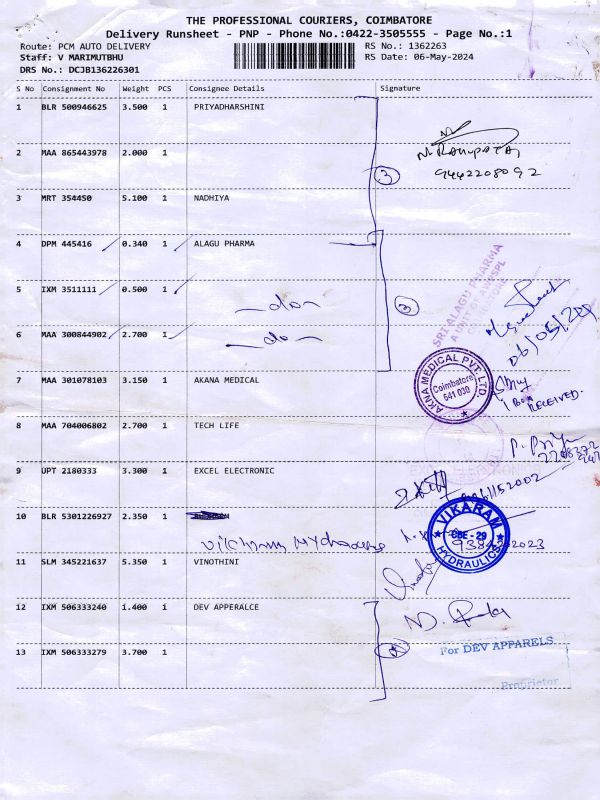 THE PROFESSIONAL COURIERS, COIMBATORE
Delivery Runsheet - PNP - Phone No.:0422-3505555 - Page No.:1
Route: PCM AUTO DELIVERY
RS No.: 1362263
Staff: V MARIMUTBHU
RS Date: 06-May-2024
DRS No.: DCJB136226301
S No Consignment No Weight PCS Consignee Details Signature
1 BLR 500946625 3.500 1 PRIYADHARSHINI
2 MAA 865443978 2.000 1
3
9442208092
3 MRT 354450 5.100 1 NADHIYA
4 DPM 445416 0.340 1 ALAGU PHARMA
SRI ALAGU PHARMA
5 IXM 3511111 0.500 1 -do-
3
06/05/202
6 MAA 300844902 2.700 1 -do-
7 MAA 301078103 3.150 1 AKANA MEDICAL
AKNA MEDICAL PVT. LTD.
Coimbatore
641 030
1 Box
RECEIVED.
8 MAA 704006802 2.700 1 TECH LIFE
P. Priya
9 UPT 2180333 3.300 1 EXCEL ELECTRONIC
10 BLR 5301226927 2.350 1
VIKARAM
CBE - 29
HYDRAULICS
11 SLM 345221637 5.350 1 VINOTHINI
12 IXM 506333240 1.400 1 DEV APPERALCE
For DEV APPARELS
13 IXM 506333279 3.700 1
Proprietor